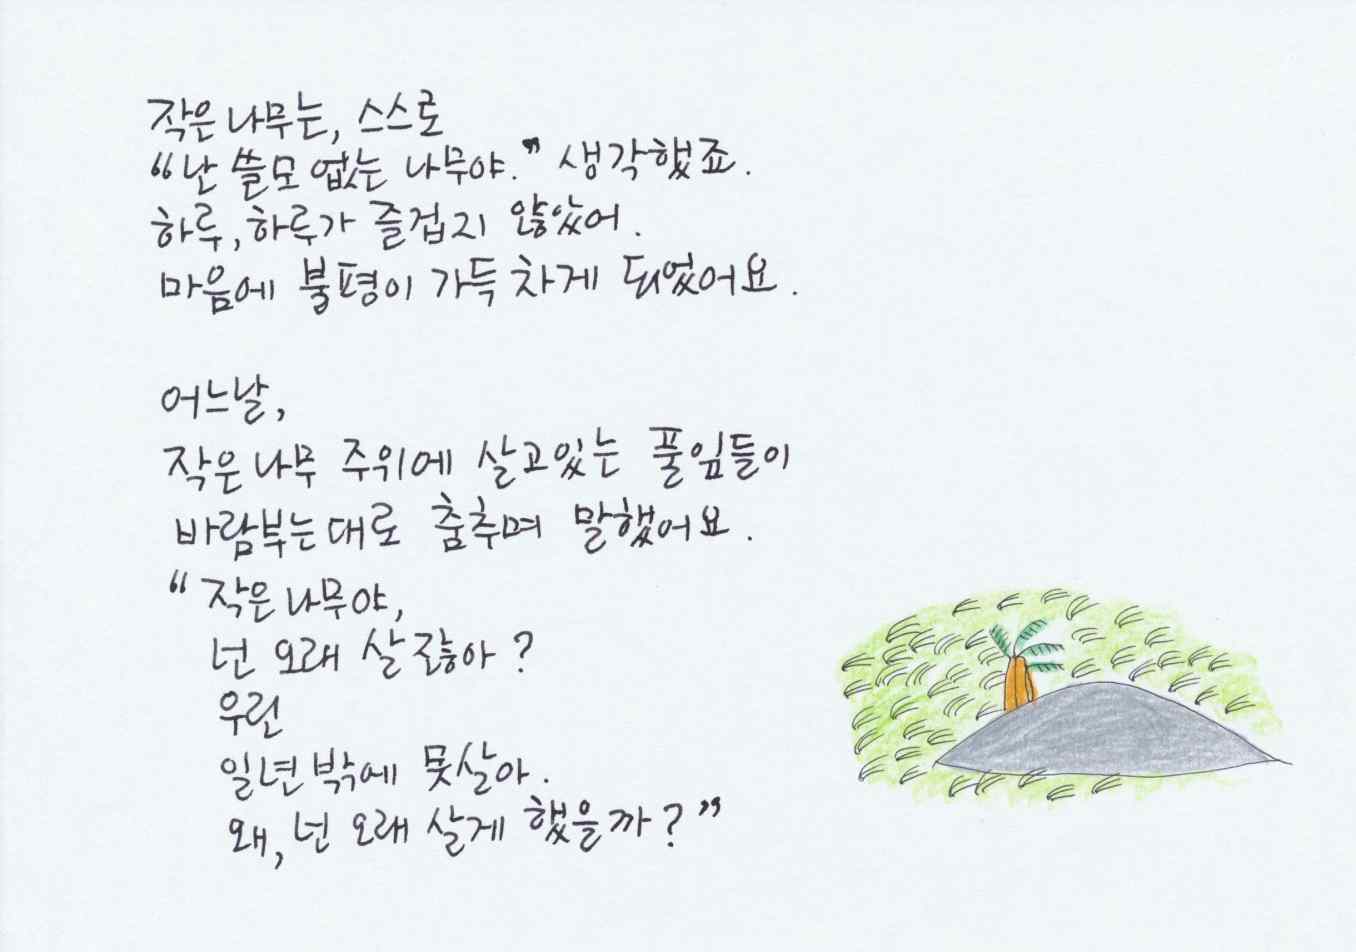 작은 나무는, 스스로
“난 쓸모 없는 나무야.” 생각했죠.
하루, 하루가 즐겁지 않았어.
마음에 불평이 가득 차게 되었어요.
어느날,
작은 나무 주위에 살고있는 풀잎들이
바람부는대로 춤추며 말했어요.
“작은 나무야,
넌 오래 살잖아?
우린
일년 밖에 못살아.
왜, 넌 오래 살게 했을까?”